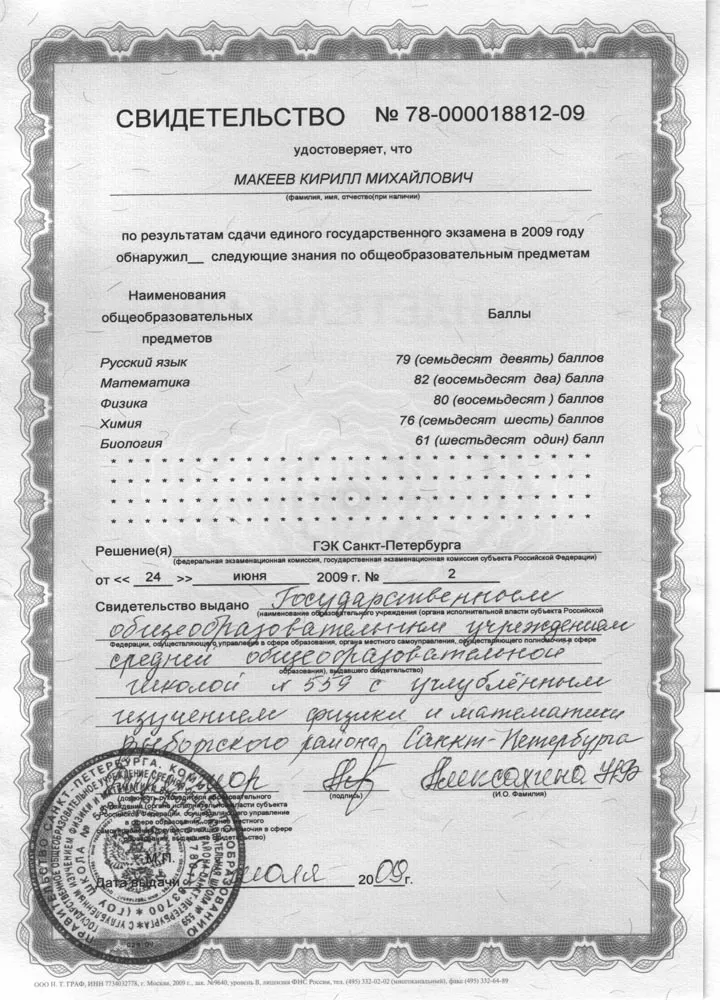 СВИДЕТЕЛЬСТВО № 78-000018812-09
удостоверяет, что
МАКЕЕВ КИРИЛЛ МИХАЙЛОВИЧ
(фамилия, имя, отчество(при наличии)
по результатам сдачи единого государственного экзамена в 2009 году
обнаружил__ следующие знания по общеобразовательным предметам
Наименования
общеобразовательных
предметов
Баллы
Русский язык 79 (семьдесят девять) баллов
Математика 82 (восемьдесят два) балла
Физика 80 (восемьдесят ) баллов
Химия 76 (семьдесят шесть) баллов
Биология 61 (шестьдесят один) балл
* * * * * * * * * * * * * * * * * * * * * * * * * *
* * * * * * * * * * * * * * * * * * * * * * * * * *
* * * * * * * * * * * * * * * * * * * * * * * * * *
* * * * * * * * * * * * * * * * * * * * * * * * * *
Решение(я) ГЭК Санкт-Петербурга
(федеральная экзаменационная комиссия, государственная экзаменационная комиссия субъекта Российской Федерации)
от << 24 >> июня 2009 г. № 2
Свидетельство выдано Государственным
(наименование образовательного учреждения (органа исполнительной власти субъекта Российской
общеобразовательным учреждением
Федерации, осуществляющего управление в сфере образования, органа местного самоуправления, осуществляющего полномочия в сфере
средней общеобразовательной
образования), выдавшего свидетельство)
школой № 559 с углублённым
изучением физики и математики
Выборгского района Санкт-Петербурга
(подпись)
(И.О. Фамилия)
(должность руководителя образовательного
учреждения (органа исполнительной власти субъекта
Российской Федерации, осуществляющего управление
в сфере образования, органа местного
самоуправления, осуществляющего полномочия в сфере
образования, выдавшего свидетельство)
М.П.
Дата выдачи июля 2009г.
ООО Н. Т. ГРАФ, ИНН 7734032778, г. Москва, 2009 г., зак. №9640, уровень В, лицензия ФНС России, тел. (495) 332-02-02 (многоканальный), факс (495) 332-64-89